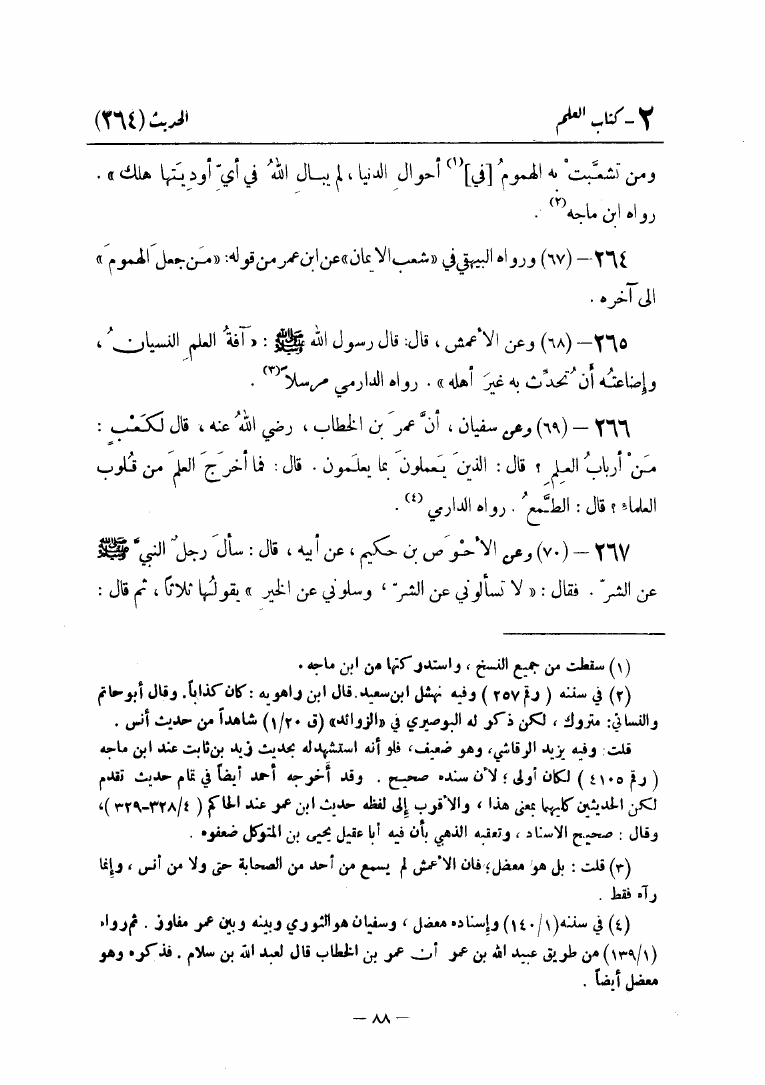 ٢ - كتاب العلم الحديث (٢٦٤)
ومن تشعَّبتْ به الهمومُ [في](١) أحوالِ الدنيا ، لم يبـالِ اللهُ في أيِّ أوديتَها هلك » .
رواه ابن ماجه(٢) .
٢٦٤ – (٦٧) ورواه البيهقي في «شعب الايمان»عن ابن عمر من قوله: «مَـن جعلَ الهمومَ »
الى آخره .
٢٦٥ – (٦٨) وعن الأعمش ، قال: قال رسول الله ﷺ : « آفةُ العلمِ النسيانُ ،
وإضاعتُـه أن تُحدِّث به غيرَ أهله » . رواه الدارمي مرسلاً(٣) .
٢٦٦ – (٦٩) وعن سفيان ، أنَّ عمرَ بن الخطاب ، رضي اللهُ عنه ، قال لكَعْبٍ :
مَـنْ أربابُ العلمِ ؟ قال : الذينَ يَـعملونَ بما يعلَمون . قال : فما أخرَجَ العلمَ من قُلوب
العلماءِ ؟ قال : الطَّمعُ . رواه الدارمي (٤) .
٢٦٧ – (٧٠) وعن الأحْوَص بن حكيم ، عن أبيه ، قال : سألَ رجلٌ النبيَّ ﷺ
عن الشرِّ . فقال : « لا تسألوني عن الشرِّ ، وسلوني عن الخيرِ » يقولُها ثلاثاً ، ثم قال :
(١) سقطت من جميع النسخ ، واستدركتها من ابن ماجه .
(٢) في سننه ( رقم ٢٥٧ ) وفيه نهشل ابن سعيد. قال ابن راهويه : كان كذاباً. وقال أبو حاتم
والنسائي: متروك ، لكن ذكر له البوصيري في «الزوائد» (ق ١/٢٠) شاهداً من حديث أنس .
قلت: وفيه يزيد الرقاشي، وهو ضعيف، فلو أنه استشهد له بحديث زيد بن ثابت عند ابن ماجه
( رقم ٤١٠٥ ) لكان أولى ؛ لأن سنده صحيح . وقد أخرجه أحمد أيضاً في تمام حديث تقدم
لكن الحديثين كليهما بمعنى هذا ، والأقرب إلى لفظه حديث ابن عمر عند الحاكم ( ٤/٣٢٨–٣٢٩ )،
وقال : صحيح الاسناد ، وتعقبه الذهبي بأن فيه أبا عقيل يحيى بن المتوكل ضعفوه .
(٣) قلت : بل هو معضل؛ فان الأعمش لم يسمع من أحد من الصحابة حتى ولا من أنس ، وإنما
رآه فقط .
(٤) في سننه(١/١٤٠) وإسناده معضل ، وسفيان هو الثوري وبينه وبين عمر مفاوز . ثم رواه
(١/١٣٩) من طريق عبيد الله بن عمر أن عمر بن الخطاب قال لعبد الله بن سلام . فذكره وهو
معضل أيضاً .
– ٨٨ –